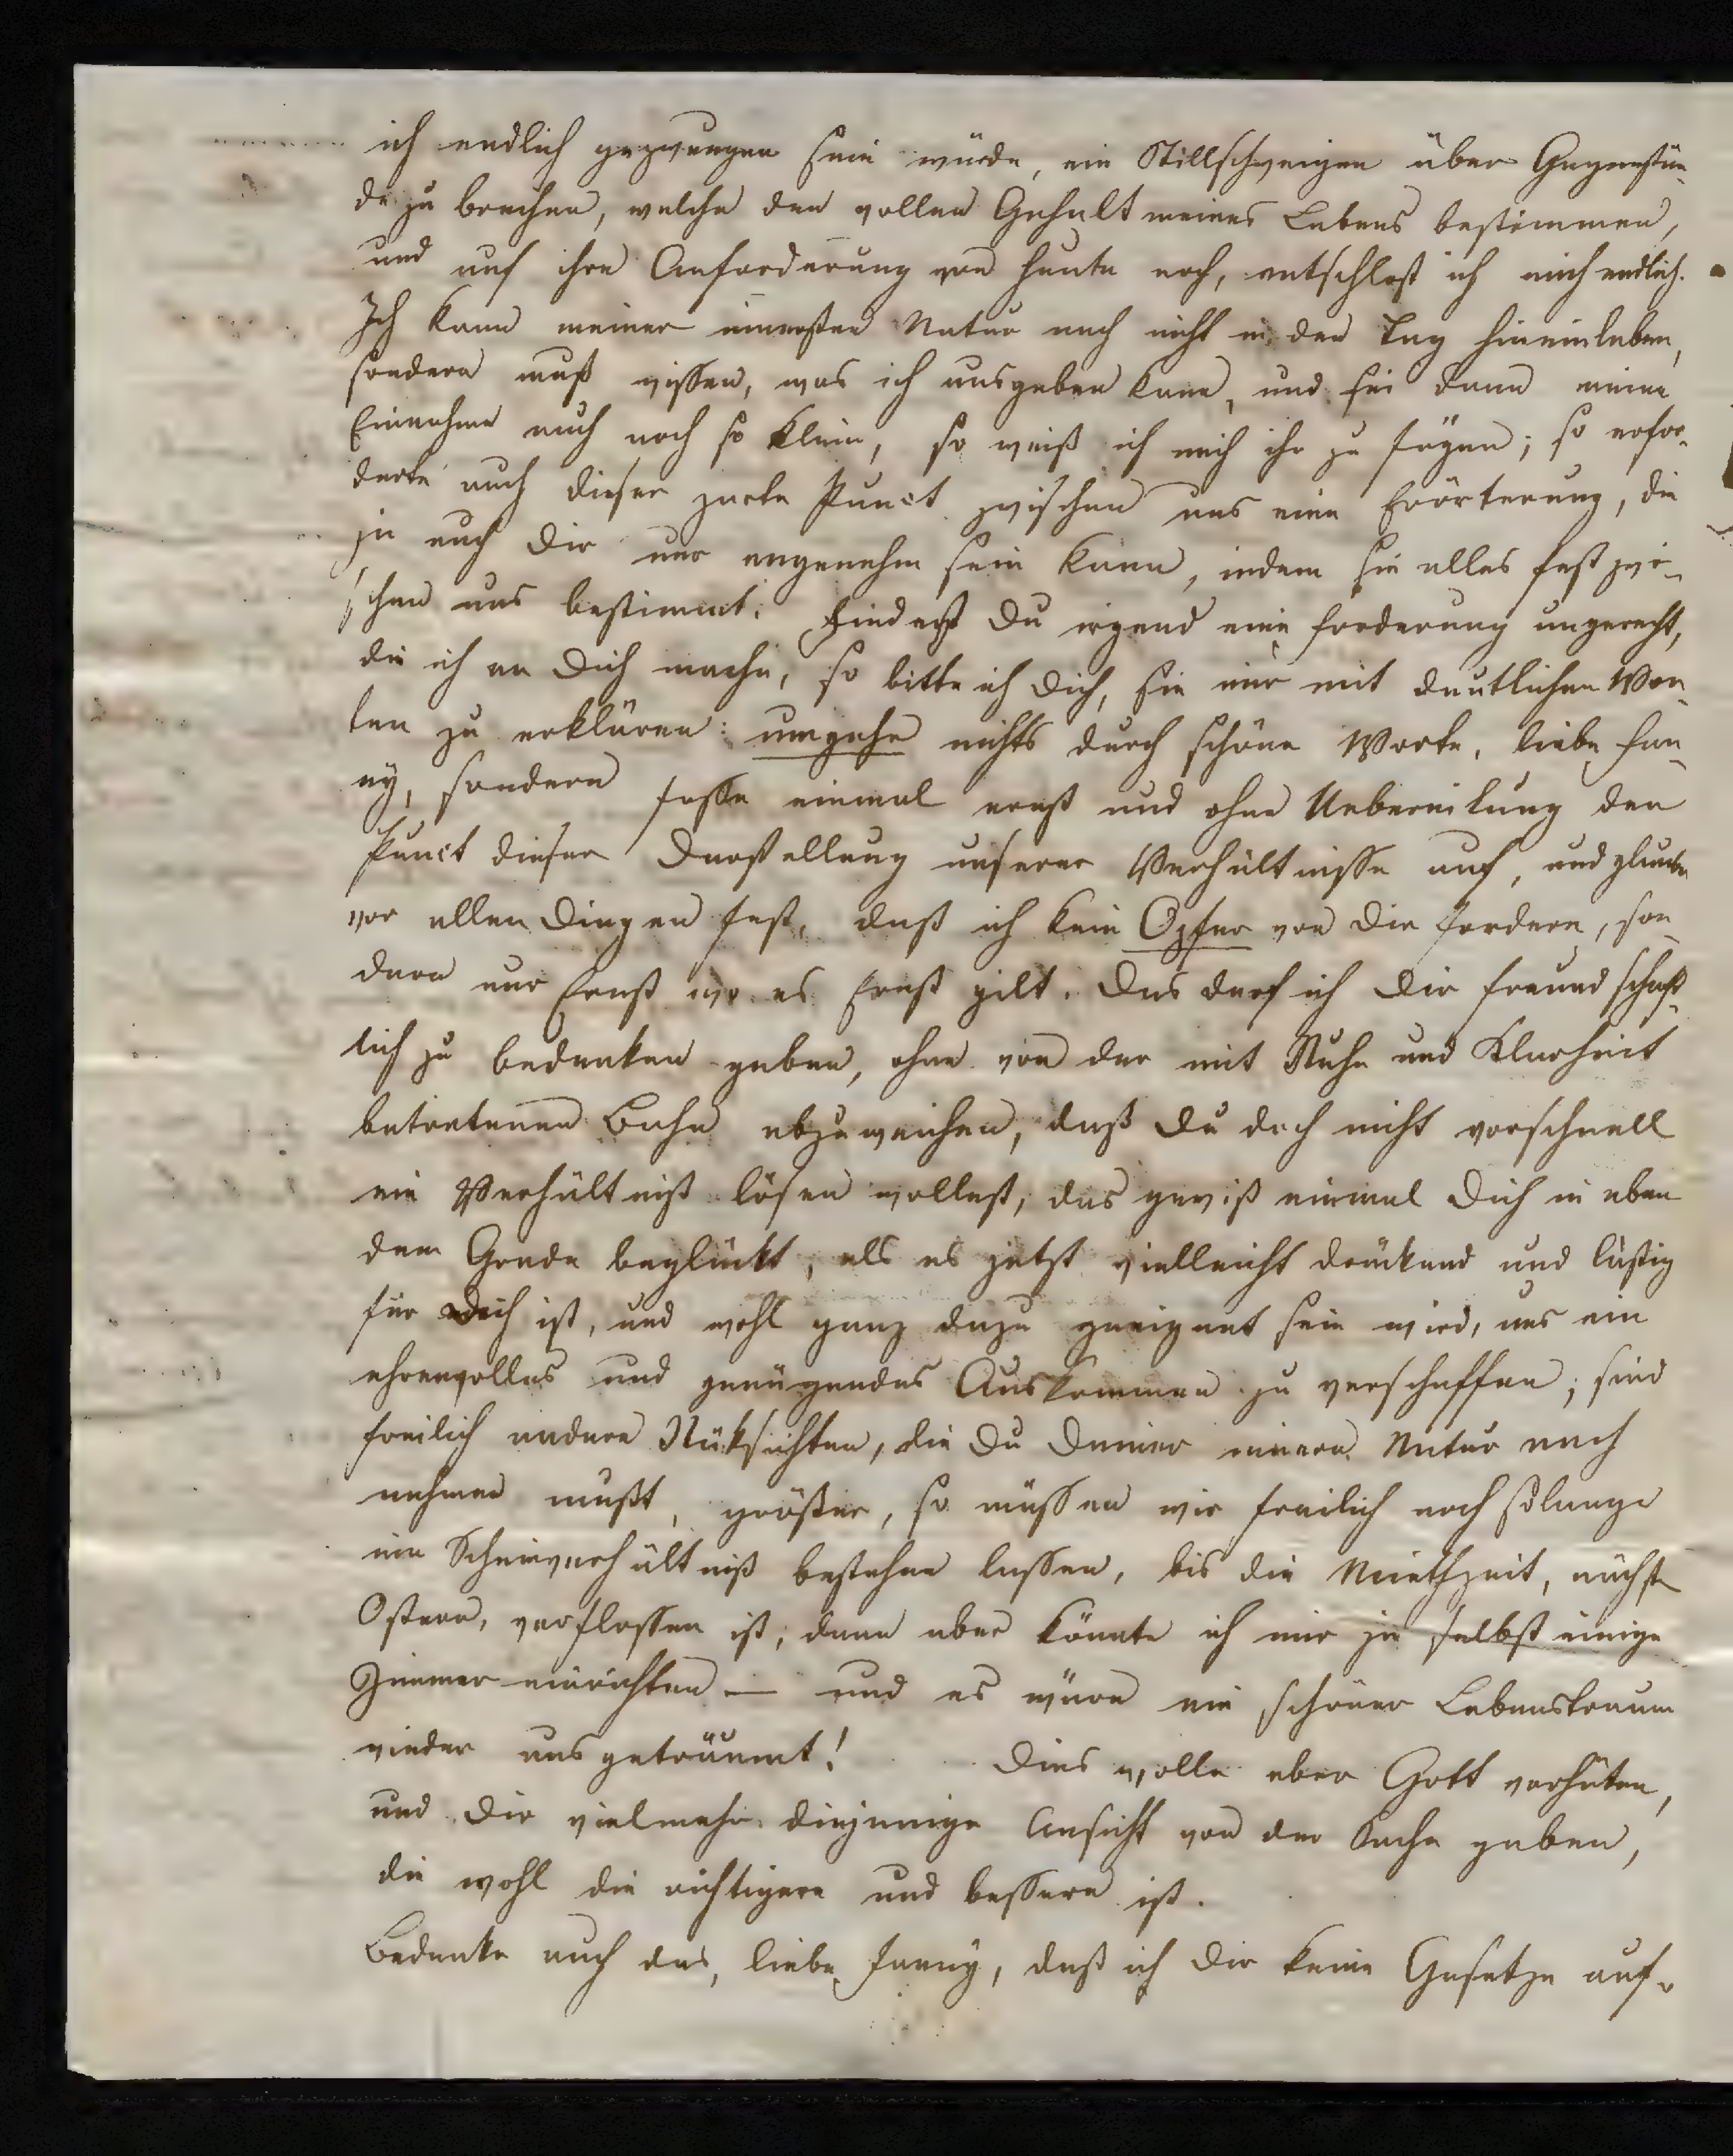 ich endlich gezwungen sein würde, ein Stillschweigen über Gegenstän-
de zu brechen, welche den vollen Gehalt meines Lebens bestimmen,
und auf ihre Anforderung von heute noch, entschloß ich mich endlich.
Ich kann meiner innersten Natur nach nicht in den Tag hineinleben,
sondern muß wissen, was ich ausgeben kann, und sei dann meine
Einnahme auch noch so klein, so weiß ich mich ihr zu fügen; so erfor-
derte auch dieser zarte Punct zwischen uns eine Erörterung, die
ja auch Dir nur angenehm sein kann, indem sie alles fest zwi-
schen uns bestimmt. Findest Du irgend eine Forderung ungerecht,
die ich an Dich mache, so bitte ich Dich, sie mir mit deutlichen Wor-
ten zu erklären: umgehe nichts durch schöne Worte, liebe Fan-
ny, sondern fasse einmal ernst und ohne Uebereilung den
Punct dieser Darstellung unserer Verhältnisse auf, und glaube
vor allen Dingen fest, daß ich kein Opfer von Dir fordere, son-
dern nur Ernst wo es Ernst gilt. Das darf ich Dir freundschaft-
lich zu bedenken geben, ohne von der mit Ruhe und Klarheit
betretenen Bahn abzuweichen, daß Du doch nicht vorschnell
ein Verhältniß lösen wollest, das gewiß einmal Dich in eben
dem Grade beglückt, als es jetzt vielleicht drückend und lästig
für Dich ist, und wohl ganz dazu geeignet sein wird, uns ein
ehrenvolles und genügendes Auskommen zu verschaffen; sind
freilich andere Rüksichten, die Du Deiner innern Natur nach
nehmen mußt, größer, so müssen wir freilich noch solange
ein Scheinverhältniß bestehen lassen, bis die Miethzeit, nächste
Ostern, verflossen ist; dann aber könnte ich mir ja selbst einige
Zimmer einrichten — und es wäre ein schöner Lebenstraum
wieder ausgeträumt! Dies wolle aber Gott verhüten,
und Dir vielmehr diejenige Ansicht von der Sache geben,
die wohl die richtigere und bessere ist.
Bedenke auch das, liebe Fanny, daß ich Dir keine Gesetze auf-